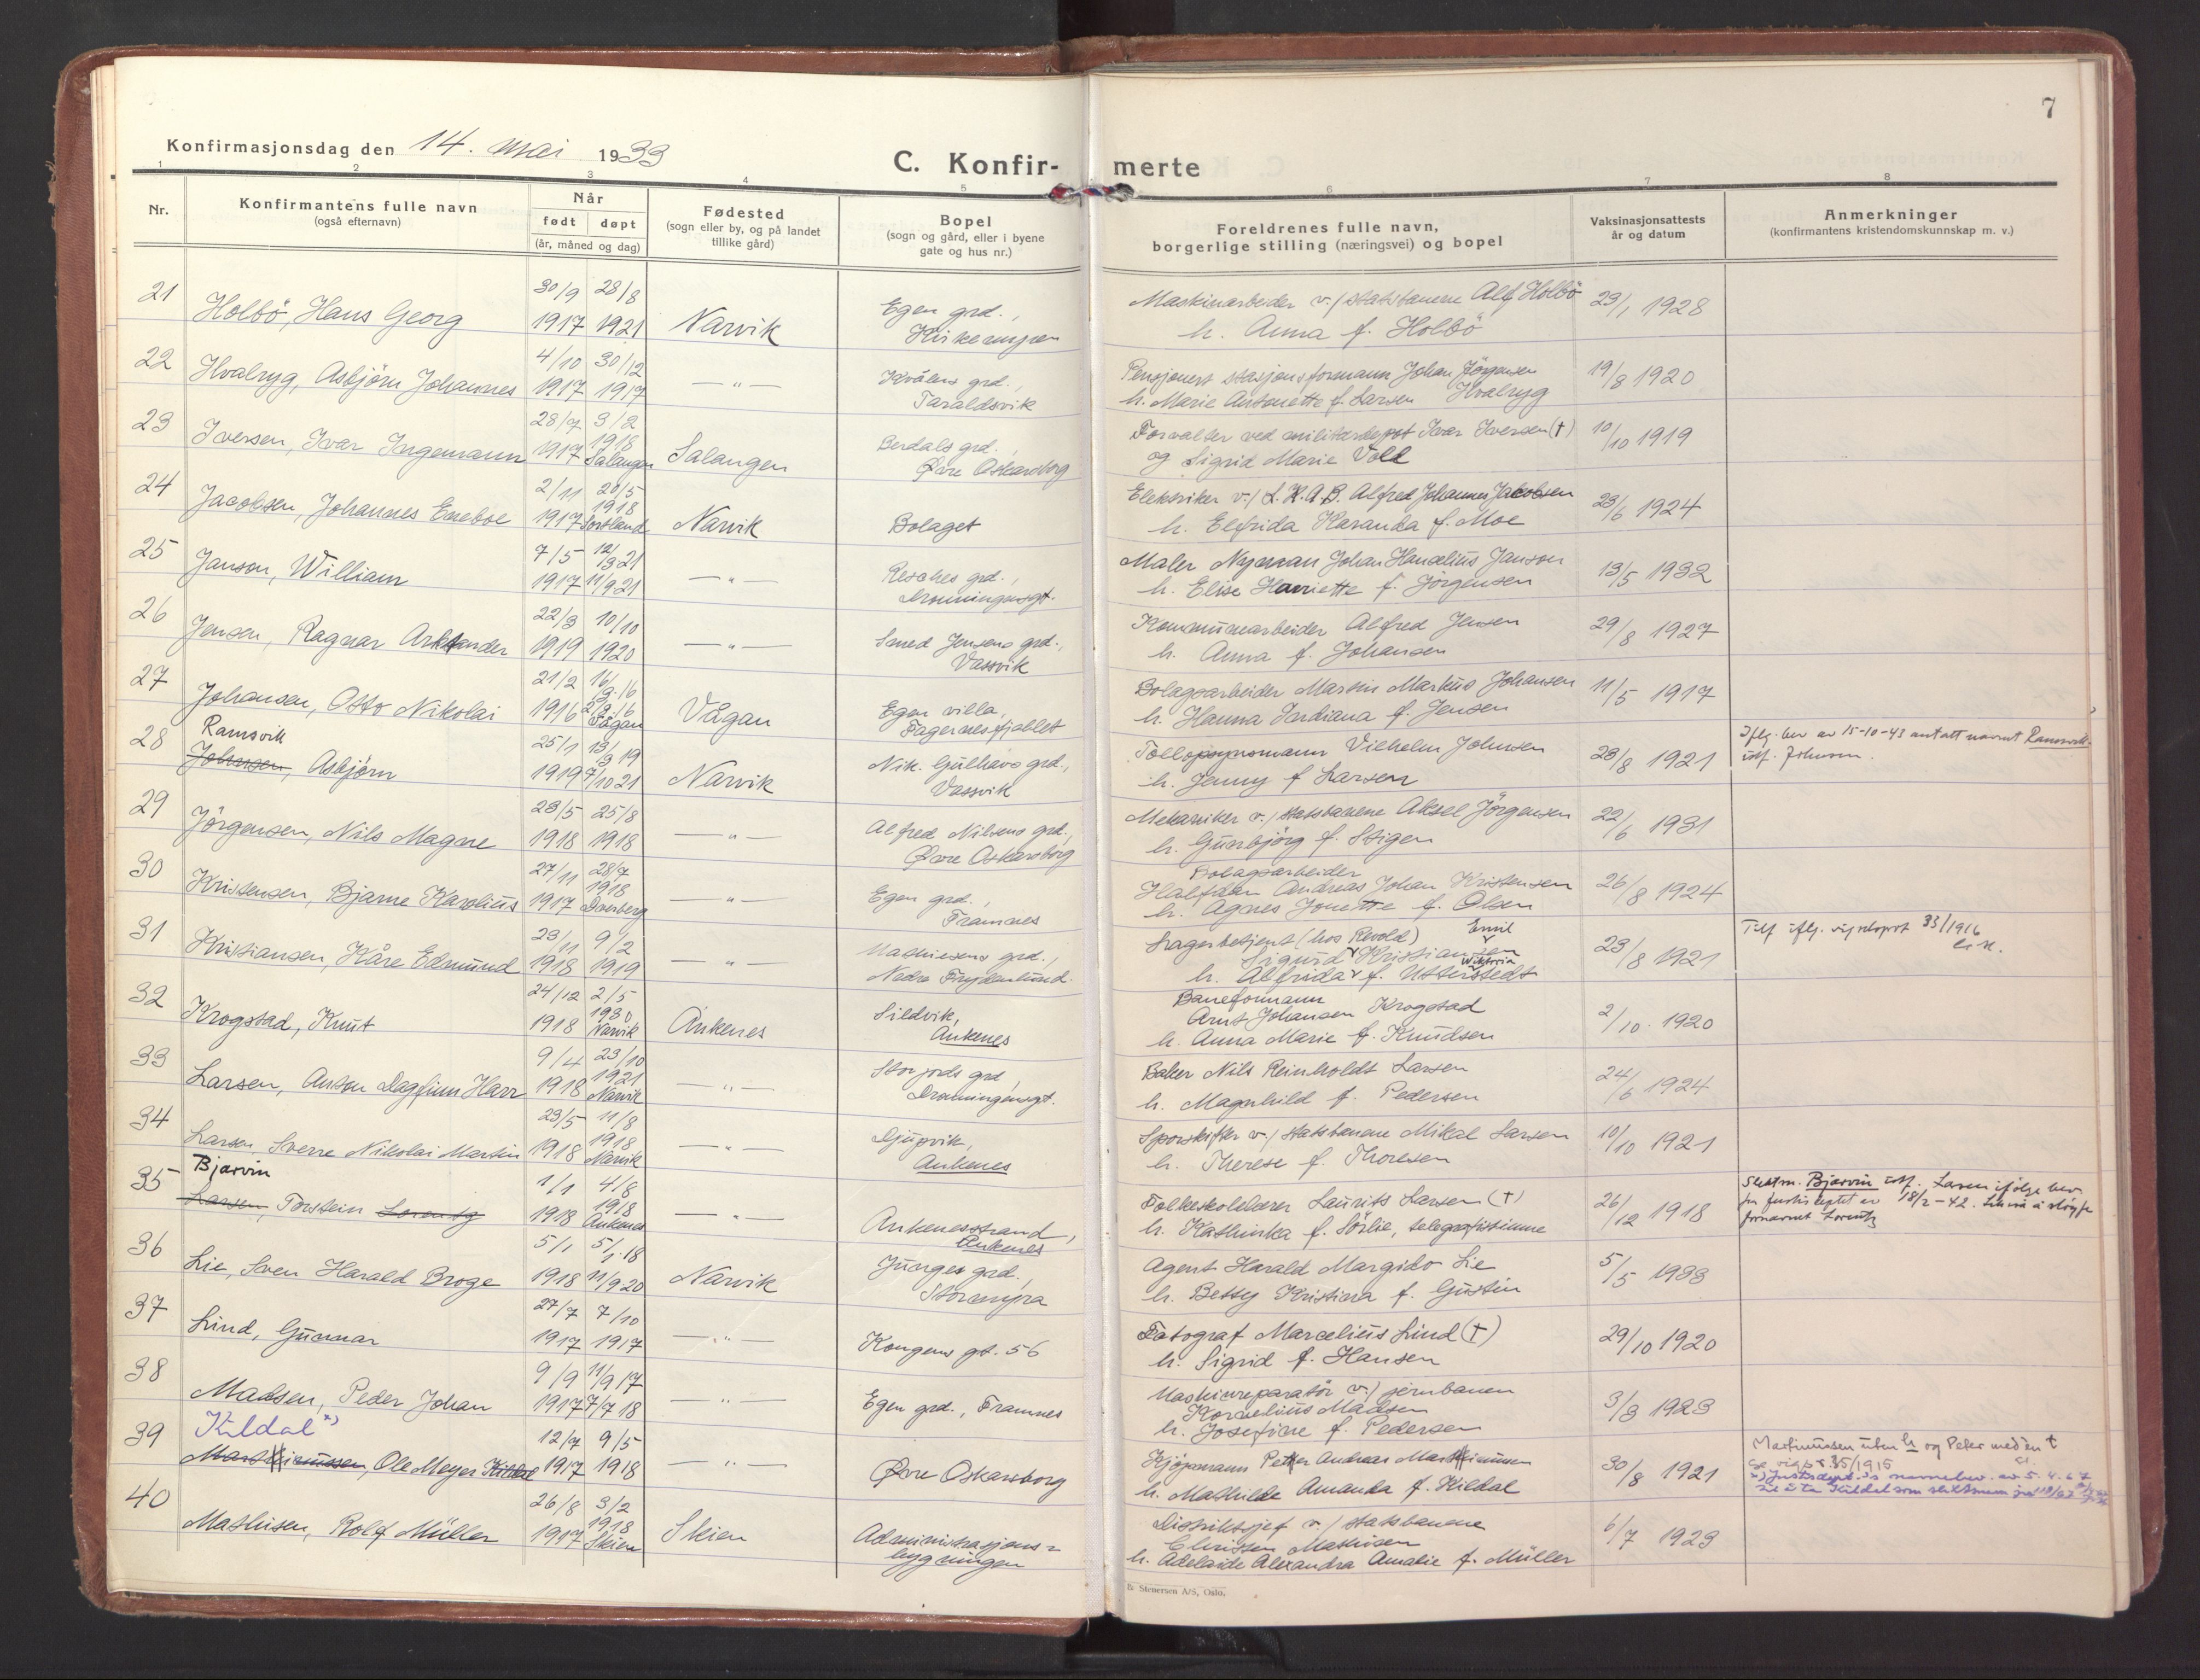 7
Konfirmasjonsdag den 14. mai 1933
C. Konfir- merte
1 2 3 4 5 6 7 8
Nr.
Konfirmantens fulle navn
(også efternavn)
Når
født døpt
(år, måned og dag)
Fødested
(sogn eller by, og på landet
tillike gård)
Bopel
(sogn og gård, eller i byene
gate og hus nr.)
Foreldrenes fulle navn,
borgerlige stilling (næringsvei) og bopel
Vaksinasjonsattests
år og datum
Anmerkninger
(konfirmantens kristendomskunnskap m. v.)
21 30/9 28/8 Egen grd., Maskinarbeider v./ statsbanene Alf Holbö 23/1 1928
Holbö, Hans Georg 1917 1921 Narvik Kirkemyren h. Anna f. Holbö
22 4/10 30/12 Kvålens grd., Pensjonert stasjonsformann Johan Jörgensen 19/8 1920
Hvalryg, Asbjörn Johannes 1917 1917 — " — Taraldsvik h. Marie Antonette f. Larsen Hvalryg
23 28/7 3/2 Berdals grd., Forvalter ved militærdepot Ivar Iversen (†) 10/10 1919
Iversen, Ivar Ingemann 1917 1918 Salangen Salangen Øvre Oskarsborg og Sigrid Marie Vold
24 2/11 20/5 Elektriker v./ L.K.A.B. Alfred Johannes Jacobsen 23/6 1924
Jacobsen, Johannes Eneboe 1917 1918 Sortland Narvik Bolaget h. Elfrida Karanda f. Moe
25 7/5 12/3 21 Resches grd., Maler Nyman Johan Handelius Janson 13/5 1932
Janson, William 1917 11/9 21 — " — Dronningensgt. h. Elise Harriette f. Jörgensen
26 22/3 10/10 Smed Jensens grd., Kommunearbeider Alfred Jensen 29/8 1927
Jensen, Ragnar Arktander 1919 1920 — " — Vassvik h. Anna f. Johansen
27 21/2 16/3 16 Egen villa, Bolagsarbeider Martin Markus Johansen 11/5 1917
Johansen, Otto Nikolai 1916 Vågan Vågan Fagernesfjellet h. Hanna Dardiana f. Jensen
28 Ramsvik 25/1 13/3 19 Nik. Gulhavs grd., Tollopsynsmann Vilhelm Johnsen 23/8 1921 Iflg. bev av 15-10-43 antatt navnet Ramsvik
Johnsen, Asbjörn 1919 7/10 21 Narvik Vassvik h. Jenny f Larsen istf. Johnsen.
29 23/5 25/8 Alfred Nilsens grd., Mekaniker v./ statsbanene Aksel Jörgensen 22/6 1931
Jörgensen, Nils Magne 1918 1918 — " — Øvre Oskarsborg h. Gunbjörg f. Stigen
30 27/11 28/7 Egen grd., Bolagsarbeider 26/8 1924
Kristensen, Bjarne Karolius 1917 1918 Dverberg — " — Framnes Halfdan Andreas Johan Kristensen
h. Agnes Jonette f. Olsen
31 23/11 9/2 Mathiesens grd., Lagerbetjent (hos Revold) Emil 23/8 1921 Tilf iflg. vigselsprot 33/1916
Kristiansen, Kåre Edmund 1918 1919 — " — Nedre Frydenlund. Sigurd Kristiansen
h. Alfrida Viktoria f. Utterstedt
32 24/12 2/5 Sildvik, Baneformann 2/10 1920
Krogstad, Knut 1918 1930 Narvik Ankenes Ankenes Arnt Johansen Krogstad
h. Anna Marie f. Knudsen
33 9/4 23/10 Storjords grd, Baker Nils Reinholdt Larsen 24/6 1924
Larsen, Anton Dagfinn Harr 1918 1921 Narvik — " — Dronningensgt. h. Magnhild f. Pedersen
34 23/5 11/8 Djupvik, Sporskifter v./ statsbanene Mikal Larsen 10/10 1921
Larsen Sverre Nikolai Martin 1918 1918 Narvik — " — Ankenes h. Therese f. Thoresen
35 Bjarvin 1/1 4/8 Folkeskolelærer Laurits Larsen (†) 26/12 1918 Slektsn. Bjarvin istf. Larsen ifölge bev
Larsen, Torstein Lorentz 1918 1918 Ankenes — " — Ankenesstrand, Ankenes h. Kathinka f. Sörlie, telegrafistinne fra justisdeptet av 18/2-42. Likeså å sløyfe
fornavnet Lorentz
36 5/1 5/1 18 Junges grd., Agent Harald Margido Lie 5/5 1933
Lie, Sven Harald Broge 1918 11/9 20 Narvik Stormyra h. Betsy Kristiana f. Gustin
37 27/7 7/10 Fotograf Marcelius Lind (†) 29/10 1920
Lind, Gunnar 1917 1917 — " — Kongens gt. 56 h. Sigrid f. Hansen
38 9/9 11/9 17 Maskinreparatör v./ jernbanen 3/3 1923
Madsen, Peder Johan 1917 7/7 18 — " — Egen grd., Framnes Kornelius Madsen
h. Josefine f. Pedersen
39 Kildal *) 12/7 9/5 Kjöpmann Petter Andreas Martinussen 30/8 1921 Martinussen uten h og Peter med en t
Martinussen, Ole Meyer Kildal 1917 1918 — " — Øvre Oskarsborg h. Mathilde Amanda f. Kildal Se vigs.pr. 35/1915
*) Justisdept.'s navnebev. av 5.4.67
til å ta Kildal som slektsnavn
40 26/8 3/2 Administrasjons- Distriktsjef v./ statsbanene 6/7 1923
Mathisen, Rolf Müller 1917 1918 Skien Skien bygningen Christen Mathisen
h. Adelaide Alexandra Amalie f. Müller
Stenersen A/S, Oslo.